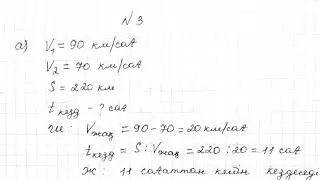 N 3
а) V₁ = 90 км/сағ
V₂ = 70 км/сағ
S = 220 км
t кезд - ? сағ
Ши: Vжақ = 90 - 70 = 20 км/сағ
tкезд = S : Vжақ = 220 : 20 = 11 сағ
Ж: 11 сағаттан кейін кездеседі